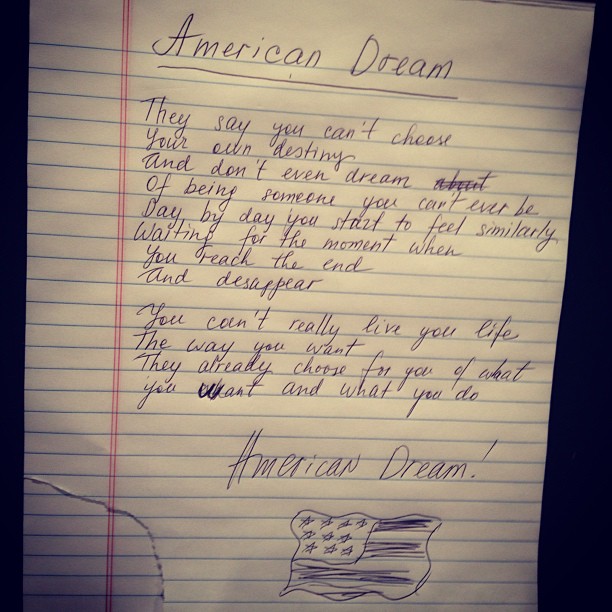 American Dream
They say you can't choose
Your own destiny
And don't even dream about
Of being someone you can't ever be
Day by day you start to feel similarly
Waiting for the moment when
You reach the end
And desappear
You can't really live you life
The way you want
They already choose for you of what
you want and what you do
American Dream!